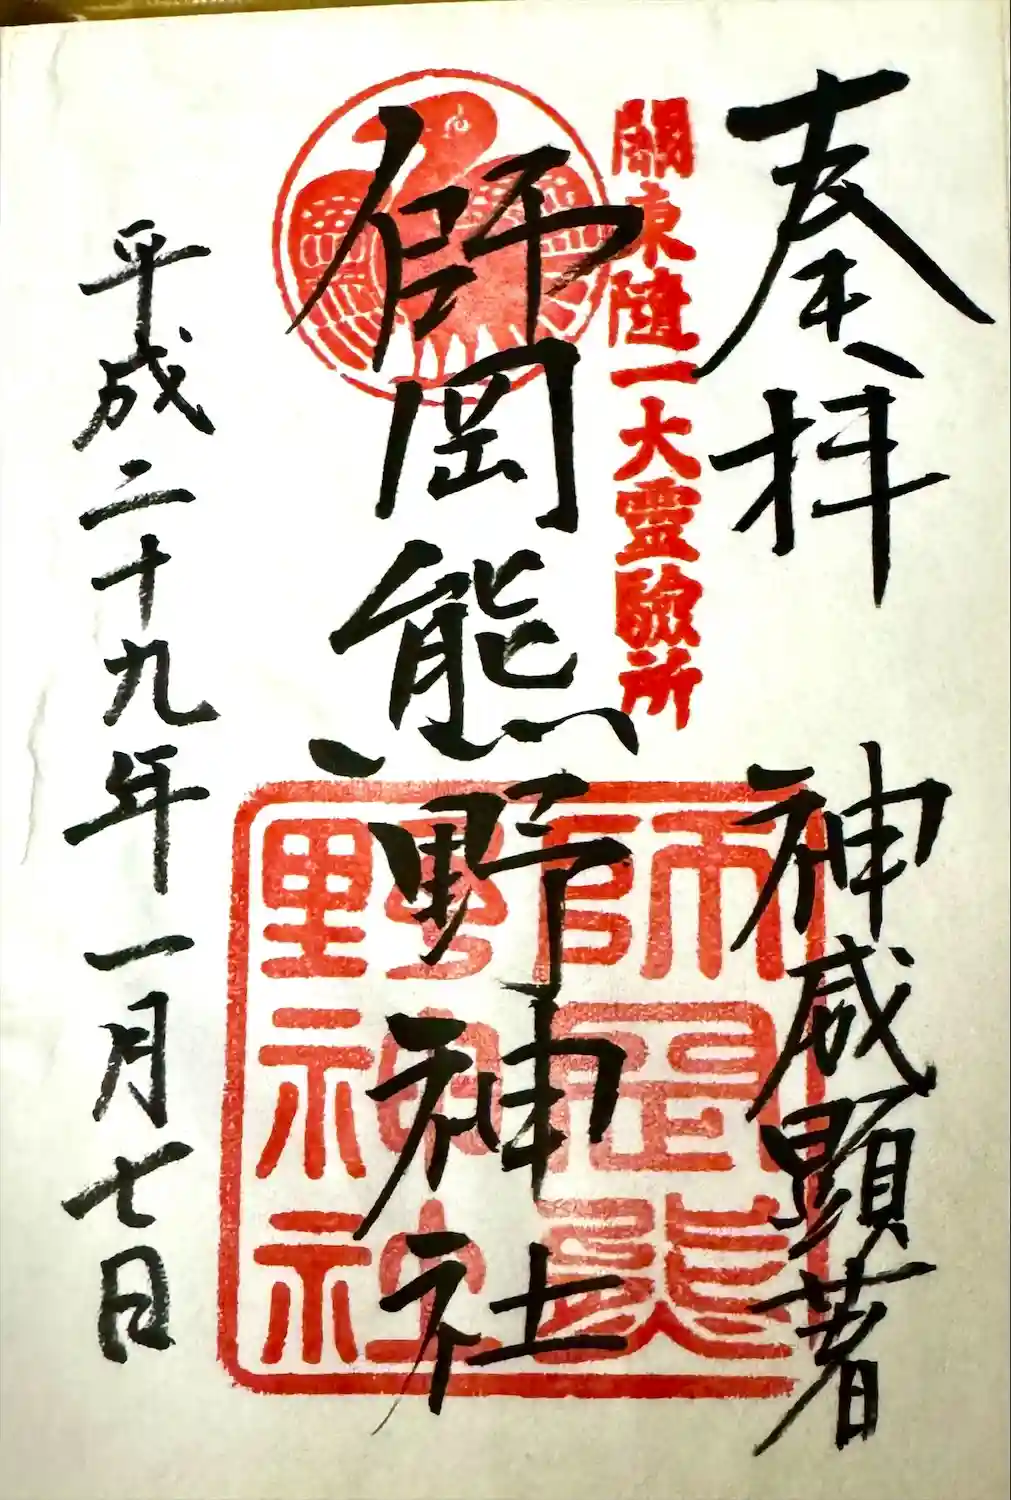 奉拝 神威顕著
關東随一大霊験所
師岡熊野神社
師岡熊野神社
平成二十九年一月七日